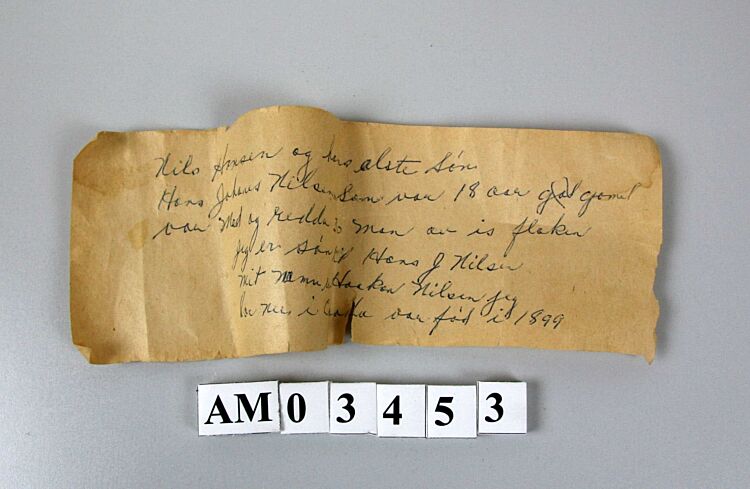 Nils Hansen og hans alste Søn
Hans Johans Nilsen Som var 18 aar gamel
var Med og redda 3 man av is flaken
jeg er søn til Hans J Nilsen
mit Namn er Haakon Nilsen jeg
var født i 1899
AM03453